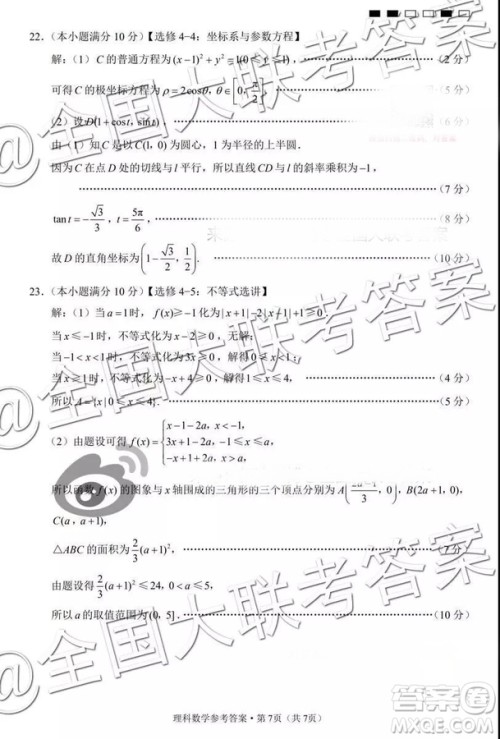 22.（本小题满分 10 分）【选修 4-4：坐标系与参数方程】
解：（1）C 的普通方程为(x−1)²+y²=1(0≤x≤1) （2 分）
可得 C 的极坐标方程为 ρ=2cosθ, θ∈[0, π/2] （5 分）
（2）设 D(1+cost, sint) （6 分）
由（1）知 C 是以 C(1, 0) 为圆心，1 为半径的上半圆.
因为 C 在点 D 处的切线与 l 平行，所以直线 CD 与 l 的斜率乘积为 −1，
（7 分）
tan t=−√3/3, t=5π/6, （8 分）
故 D 的直角坐标为(1−√3/2, 1/2). （10 分）
23.（本小题满分 10 分）【选修 4-5：不等式选讲】
解：（1）当 a=1 时，f(x)≥−1 化为|x+1|−2|x−1|+1≥0.
当 x≤−1 时，不等式化为 x−2≥0，无解；
当 −1<x<1 时，不等式化为 3x≥0，解得
当 x≥1 时，不等式化为 −x+4≥0，解得 （4 分）
所以 A={x|0≤x≤4}. （5 分）
（2）由题设可得 f(x)={x−1−2a, x<−1,
3x+1−2a, −1≤x≤a,
−x+1+2a, x>a,
所以函数 f(x) 的图象与 x 轴围成的三角形的三个顶点分别为 A(2a−1/3, 0), B(2a+1, 0),
C(a, a+1),
△ABC 的面积为 2/3 (a+1)². （7 分）
由题设得 2/3 (a+1)²≤24, 0<a≤5,
所以 a 的取值范围为 (0, 5]. （10 分）
理科数学参考答案·第 7 页（共 7 页）
@全国大联考答案
答案圈
MXQE.COM